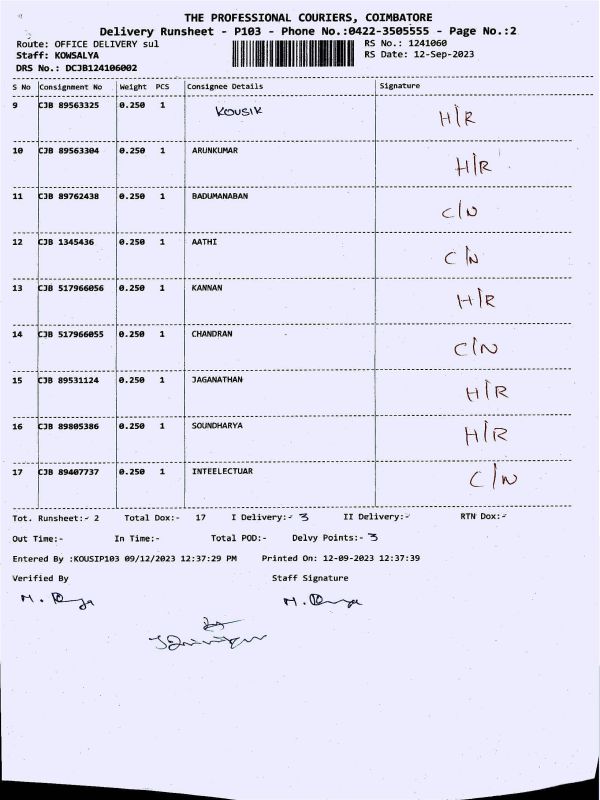 THE PROFESSIONAL COURIERS, COIMBATORE
Delivery Runsheet - P103 - Phone No.:0422-3505555 - Page No.:2
Route: OFFICE DELIVERY sul RS No.: 1241060
Staff: KOWSALYA RS Date: 12-Sep-2023
DRS No.: DCJB124106002
S No Consignment No Weight PCS Consignee Details Signature
9 CJB 89563325 0.250 1 KOUSIK H/R
10 CJB 89563304 0.250 1 ARUNKUMAR H/R
11 CJB 89762438 0.250 1 BADUMANABAN C/N
12 CJB 1345436 0.250 1 AATHI C/N
13 CJB 517966056 0.250 1 KANNAN H/R
14 CJB 517966055 0.250 1 CHANDRAN C/N
15 CJB 89531124 0.250 1 JAGANATHAN H/R
16 CJB 89805386 0.250 1 SOUNDHARYA H/R
17 CJB 89407737 0.250 1 INTEELECTUAR C/N
Tot. Runsheet:- 2 Total Dox:- 17 I Delivery:- 3 II Delivery:- RTN Dox:-
Out Time:- In Time:- Total POD:- Delvy Points:- 3
Entered By :KOUSIP103 09/12/2023 12:37:29 PM Printed On: 12-09-2023 12:37:39
Verified By Staff Signature